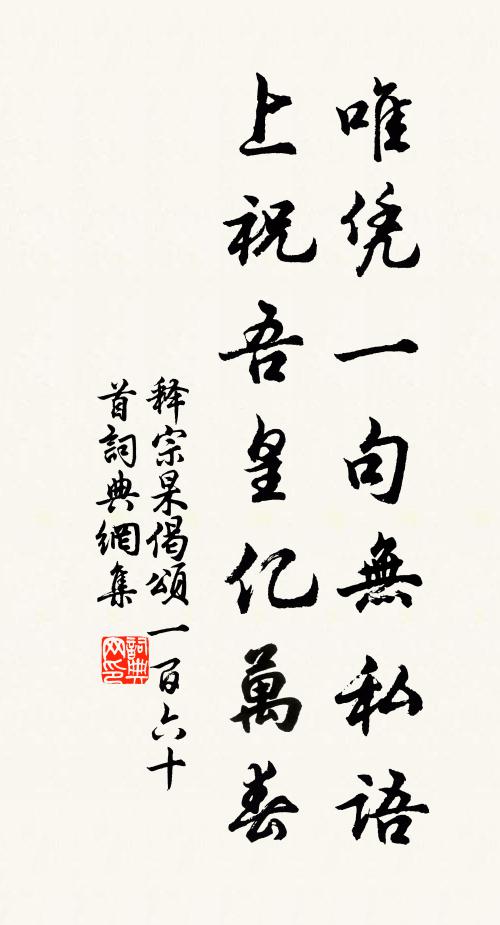 唯凭一句無私語
上祝吾皇亿萬春
释宗杲偈頌一百六十
首詞典網集
詞典
网印